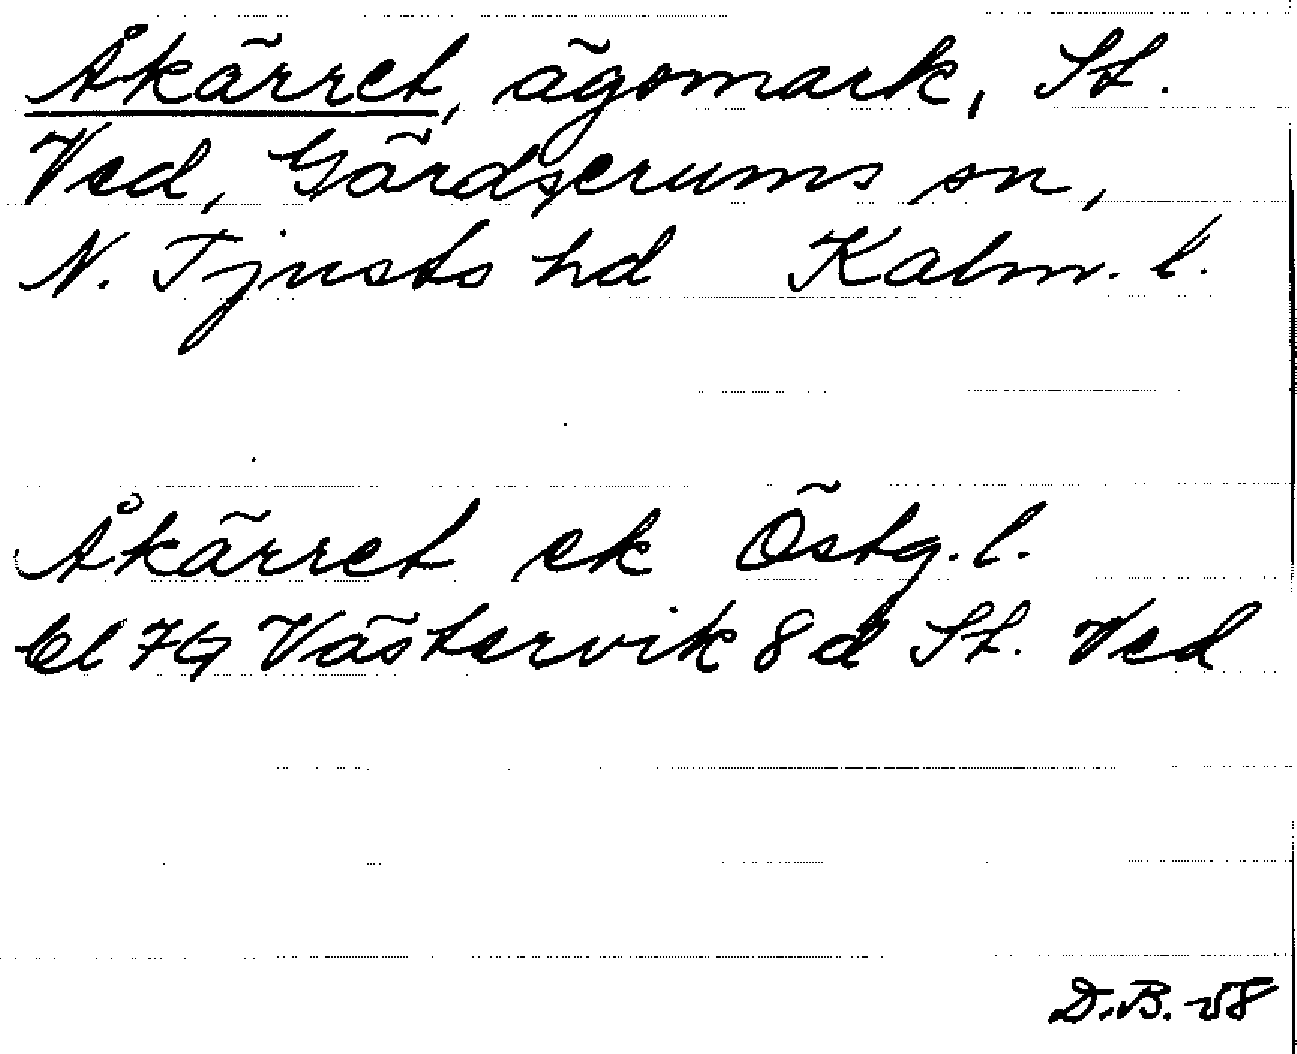 Åkärret, ägomark, St.
Ved, Gärdserums sn,
N. Tjusts hd Kalm. l.
Åkärret ek Östg. l.
bl 7G Västervik 8d St. Ved
D.B. -58